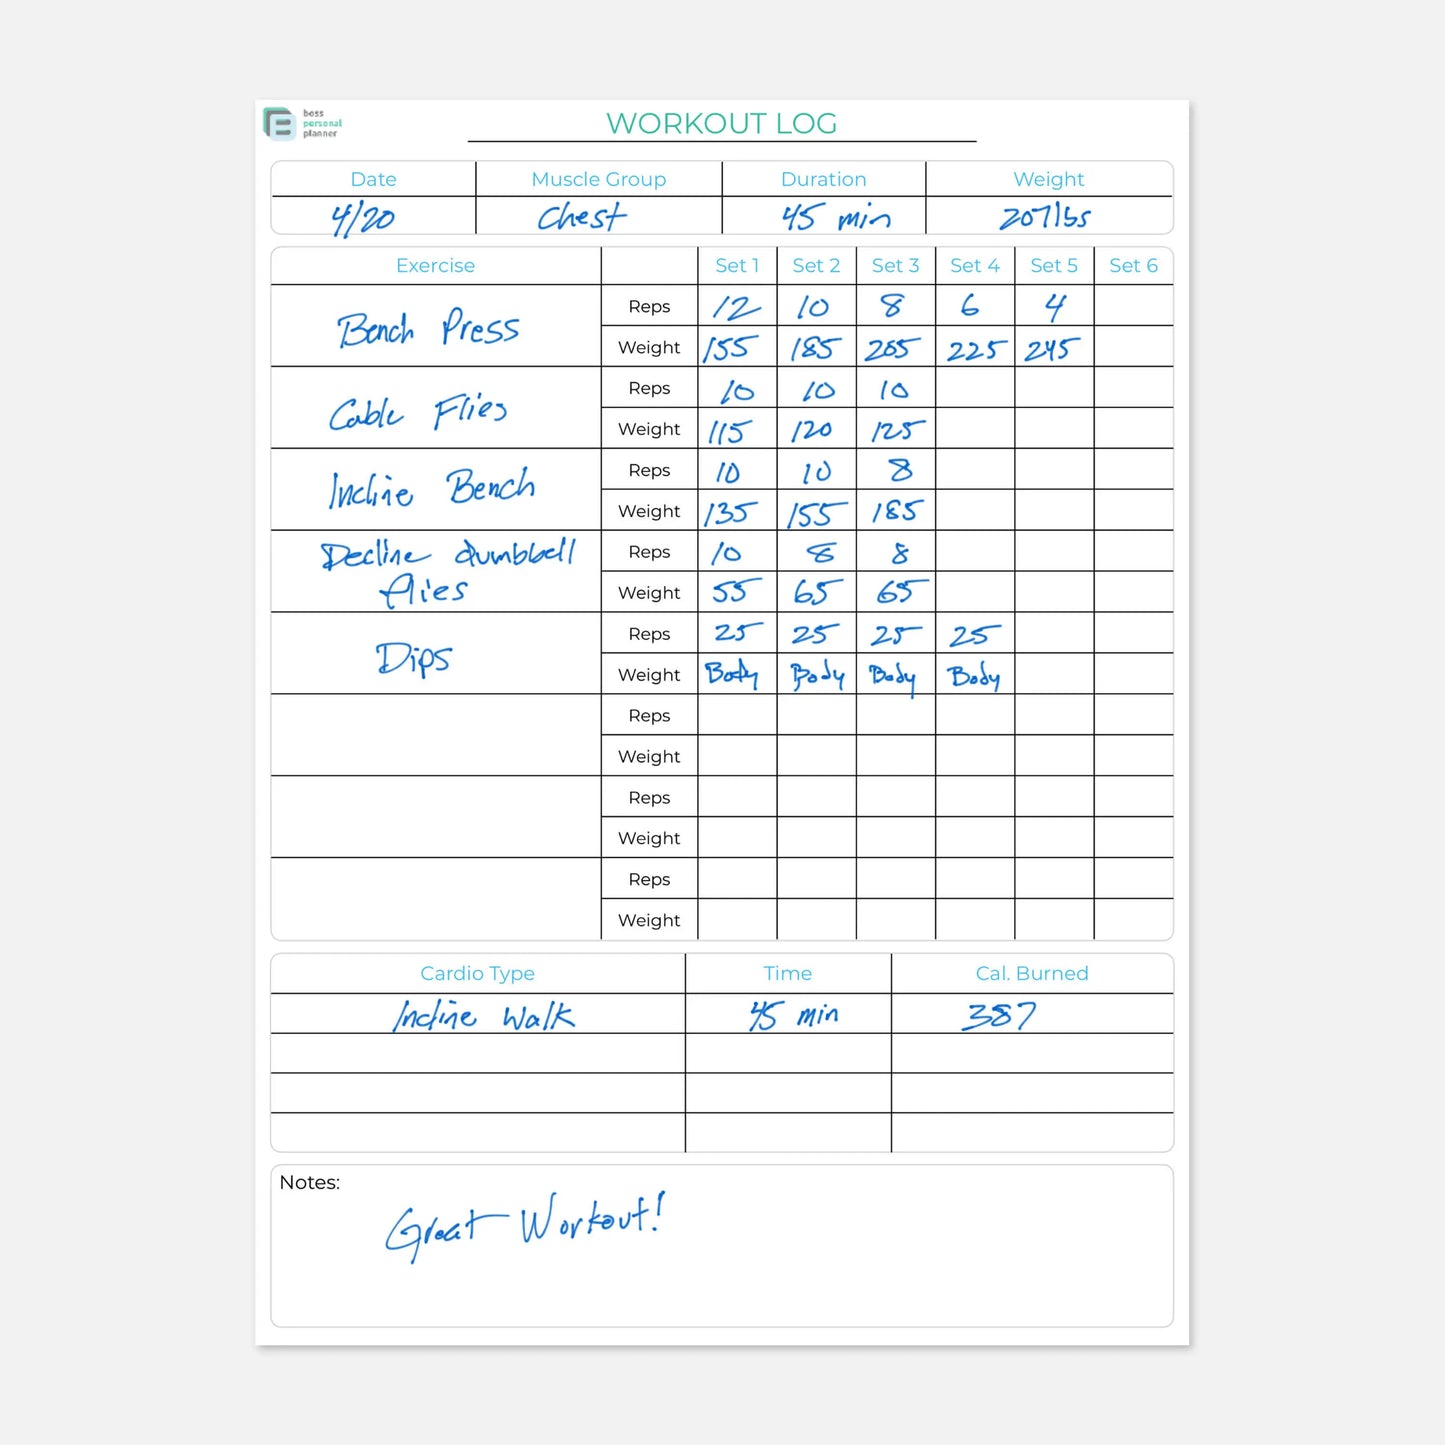 boss
personal
planner
WORKOUT LOG
Date Muscle Group Duration Weight
4/20 Chest 45 min 207lbs
Exercise Set 1 Set 2 Set 3 Set 4 Set 5 Set 6
Bench Press
Reps 12 10 8 6 4
Weight 155 185 205 225 245
Cable Flies
Reps 10 10 10
Weight 115 120 125
Incline Bench
Reps 10 10 8
Weight 135 155 185
Decline dumbbell
flies
Reps 10 8 8
Weight 55 65 65
Dips
Reps 25 25 25 25
Weight Body Body Body Body
Reps
Weight
Reps
Weight
Reps
Weight
Cardio Type Time Cal. Burned
Incline Walk 45 min 387
Notes:
Great Workout!